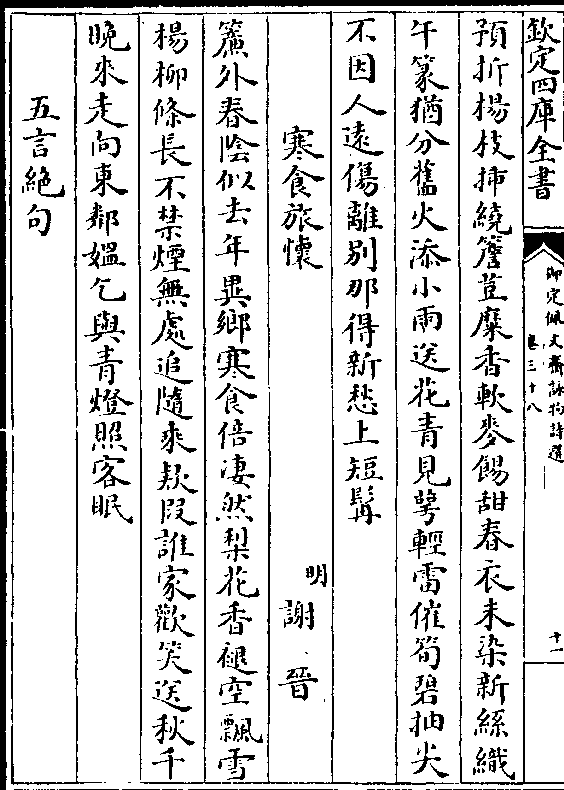 欽定四庫全書
御定佩文齋詠物詩選
卷三十八
十一
預折楊枝揷繞簷荳糜香軟麥餳甜春衣未染新絲織
午篆猶分舊火添小雨送花青見萼輕雷催筍碧抽尖
不因人遠傷離别那得新愁上短髯
寒食旅懷
明謝晉
簾外春陰似去年異鄉寒食倍凄然梨花香褪空飄雪
楊柳條長不禁煙無處追隨來欵段誰家歡笑送秋千
晚來走向東鄰媼乞與青燈照客眠
五言絶句